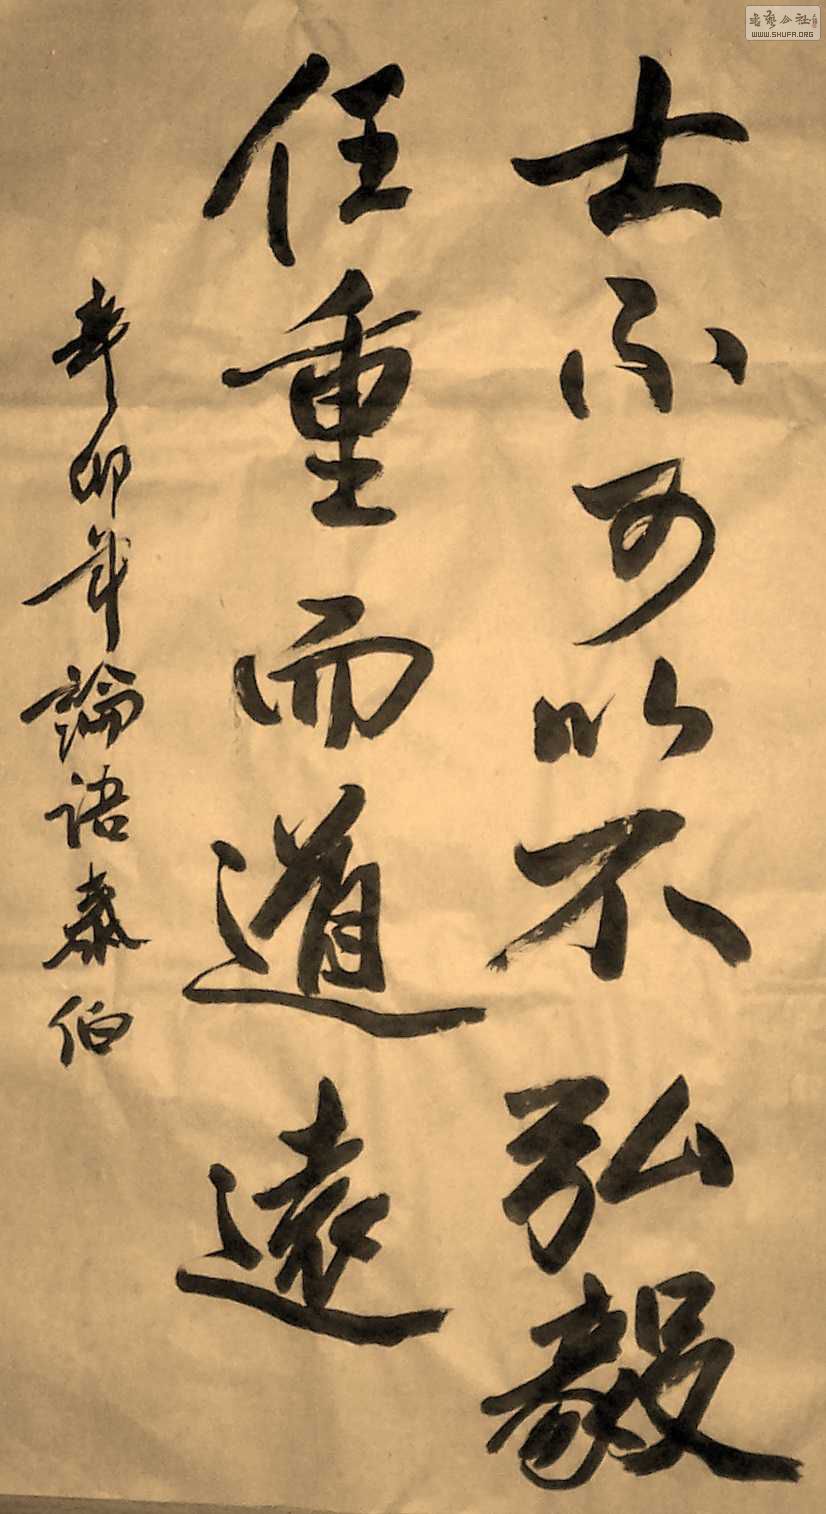 士不可以不弘毅
任重而道遠
辛卯年論語泰伯
WWW.SHUFA.ORG